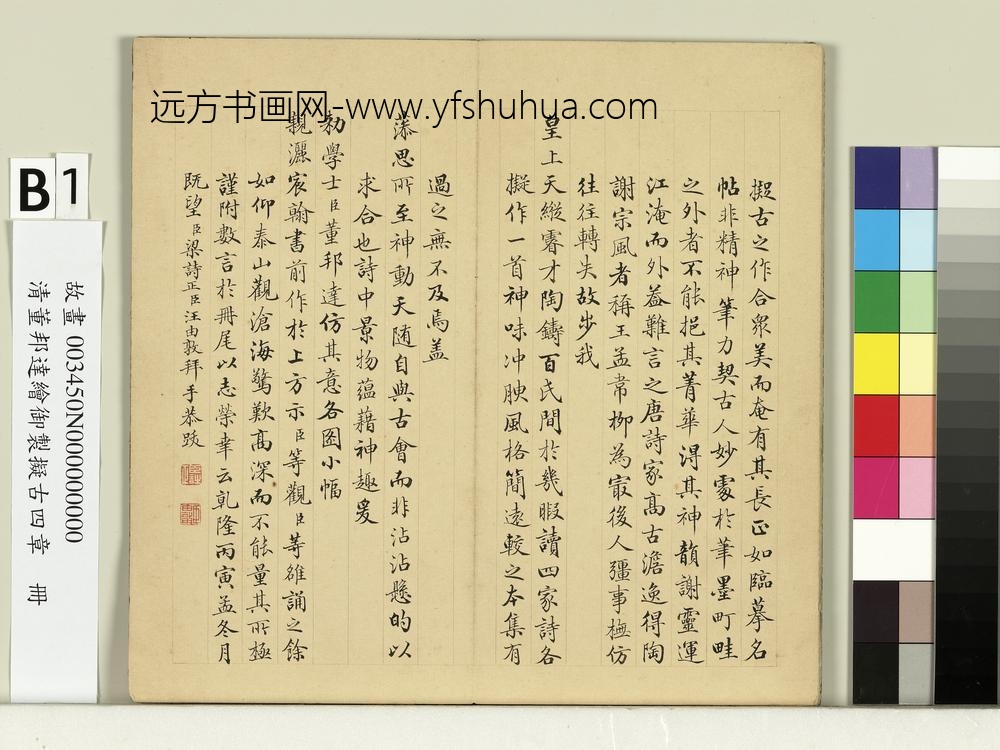 远方书画网-www.yfshuhua.com
擬古之作合衆美而奄有其長正如臨摹名
帖非精神筆力契古人妙處於筆墨町畦
之外者不能挹其菁華淂其神韻謝靈運
江淹而外葢難言之唐詩家髙古澹逸得陶
謝宗風者稱王孟常栁為冣後人彊事橅仿
往往轉失故步我
皇上天縱睿才陶鑄百氏間於幾暇讀四家詩各
擬作一首神味冲腴風格簡遠較之本集有
過之無不及焉盖
藻思所至神動天随自與古會而非沾沾懸的以
求合也詩中景物蕴藉神趣爰
勑學士臣董邦達仿其意各图小幅
親灑宸翰書前作於上方示臣等觀臣等雒誦之餘
如仰泰山觀滄海驚歎髙深而不能量其所極
謹附數言於冊尾以志榮幸云乾隆丙寅孟冬月
既望臣梁詩正臣汪由敦拜手恭跋
B1
故畫 003450N000000000
清董邦達繪御製擬古四章 冊